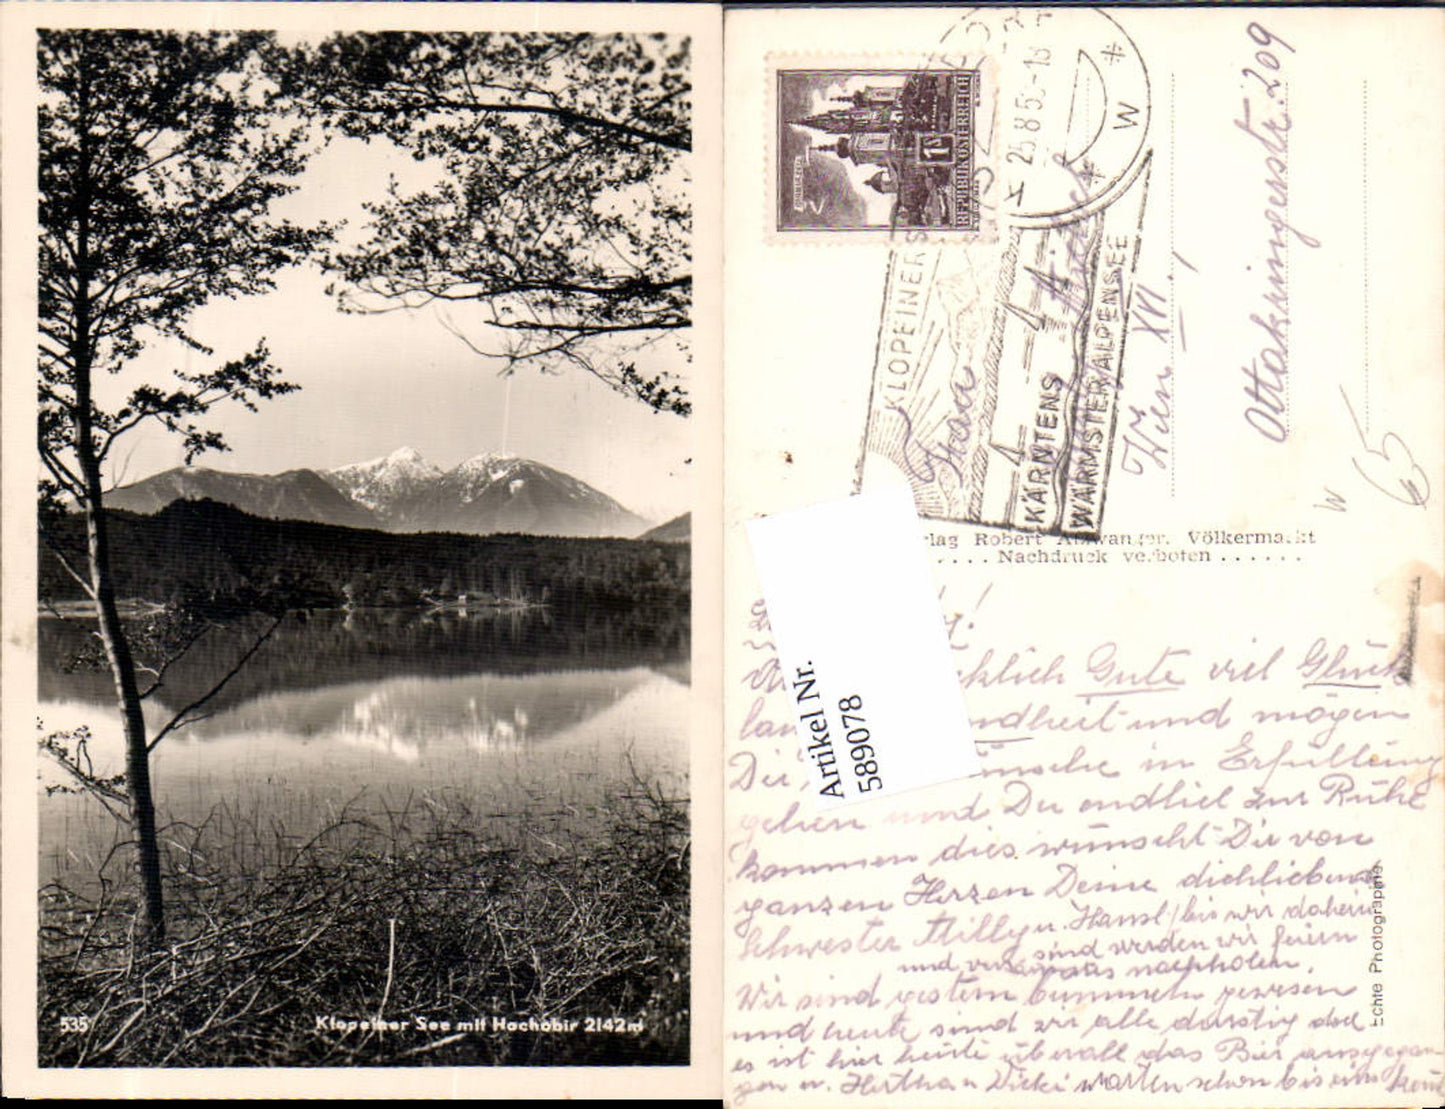 535
Klopeiner See mit Hochobir 2142m
REPUBLIK ÖSTERREICH
1
25.8.5
-18
W
KLOPEINER S
KÄRNTENS
WÄRMSTER ALPENSEE
Frau
Wien XVI!
Ottakringerstr. 209
W
65
lag Robert wanger, Völkermarkt
.... Nachdruck verboten ......
Artikel Nr.
589078
klich Gute viel Glück
ndheit und mögen
Dir, ünsche in Erfüllung
gehen und Du endlich zur Ruhe
kommen dies wünscht Dir von
ganzen Herzen Deine dichliebende
Schwester Milly u. Hansl / bis wir daheim
sind werden wir feiern
und nachholen.
Wir sind gestern bummeln gewesen
und heute sind wir alle durstig doch
es ist hier heute überall das Bier ausgegan-
gen u. Hertha u Vicki warten schon bis ein
Echte Photographie